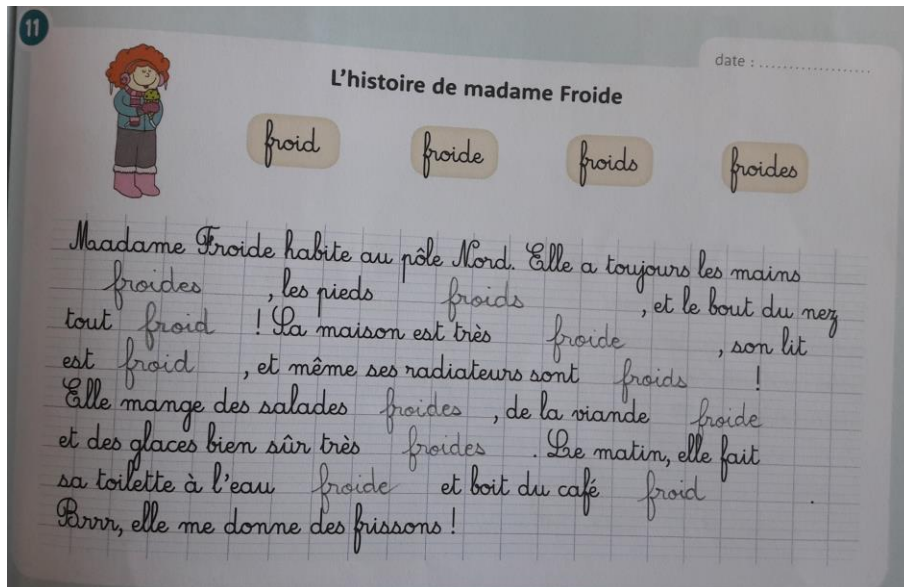 11
date : ...................
L'histoire de madame Froide
froid froide froids froides
Maadame Froide habite au pôle Nord. Elle a toujours les mains
froides , les pieds froids , et le bout du nez
tout froid ! Sa maison est très froide , son lit
est froid , et même ses radiateurs sont froids !
Elle mange des salades froides , de la viande froide
et des glaces bien sûr très froides . Le matin, elle fait
sa toilette à l'eau froide et boit du café froid .
Brrr, elle me donne des frissons !